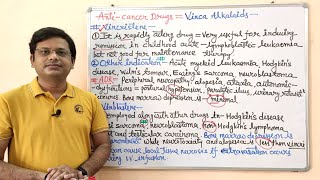 Anti-cancer Drugs = Vinca Alkaloids
Vincristine
① It is rapidly acting drug – Very useful for inducing
remission in childhood acute – lymphoblastic leukaemia
but not good for maintenance therapy.
② Other Indication – Acute myeloid leukaemia, Hodgkin's
disease, wilm's tumour, Ewing's sarcoma, neuroblastoma
ADR – Peripheral neuropathy, alopecia, ataxia, autonomic
dysfunctions = postural hypotension, paralytic ileus, urinary
seizures. Bone marrow depression is minimal
Vinblastine –
employed along with other drugs in – Hodgkin's
sarcoma, neuroblastoma, non Hodgkin's lymphoma
and testicular carcinoma. Bone marrow depression is
while neurotoxicity and alopecia is less than
can cause local tissue necrosis if extravasation occurs
during i.v. infusion